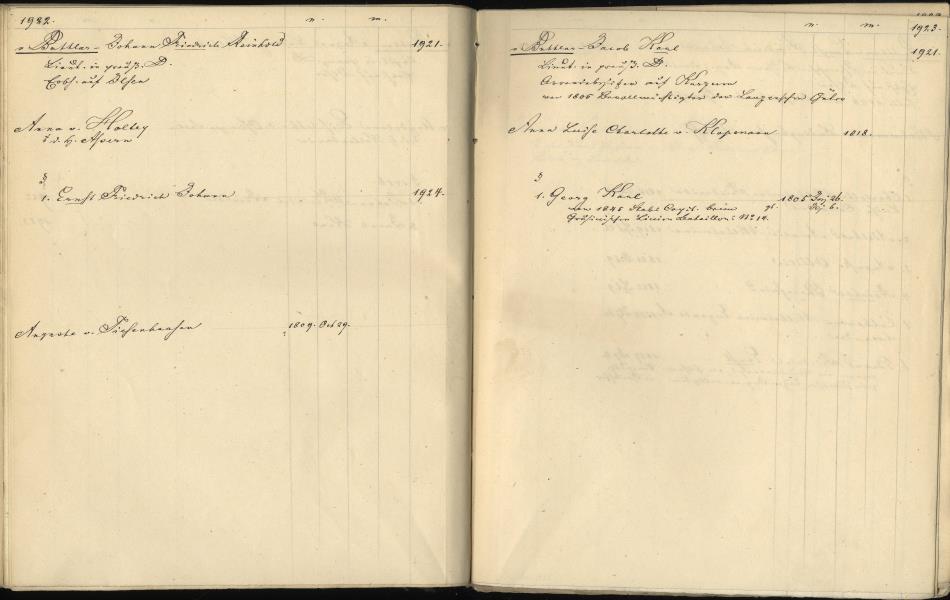 1922.
n. m.
v Buttlar-Johann Friedrich Reinhold 1921.
Lieut. in preuß. D.
Erbh. auf Ilsen
Anna v. Holtey
T. d. H. Assern
§
1. Ernst Friedrich Johann 1924.
Auguste v. Tiesenhausen 1809. Oct 29.
n. m.
1923.
v Buttlar-Jacob Karl 1921.
Lieut. in preuß. D.
Arrendebesitzer auf
war 1805 Bevollmächtigter der
Anna Luise Charlotte v. Klopmann 1818.
§
1. Georg Karl 1805 Dez. 26.
war 1845 Stabs Capit. beim
Linien Bataillon: No 14.